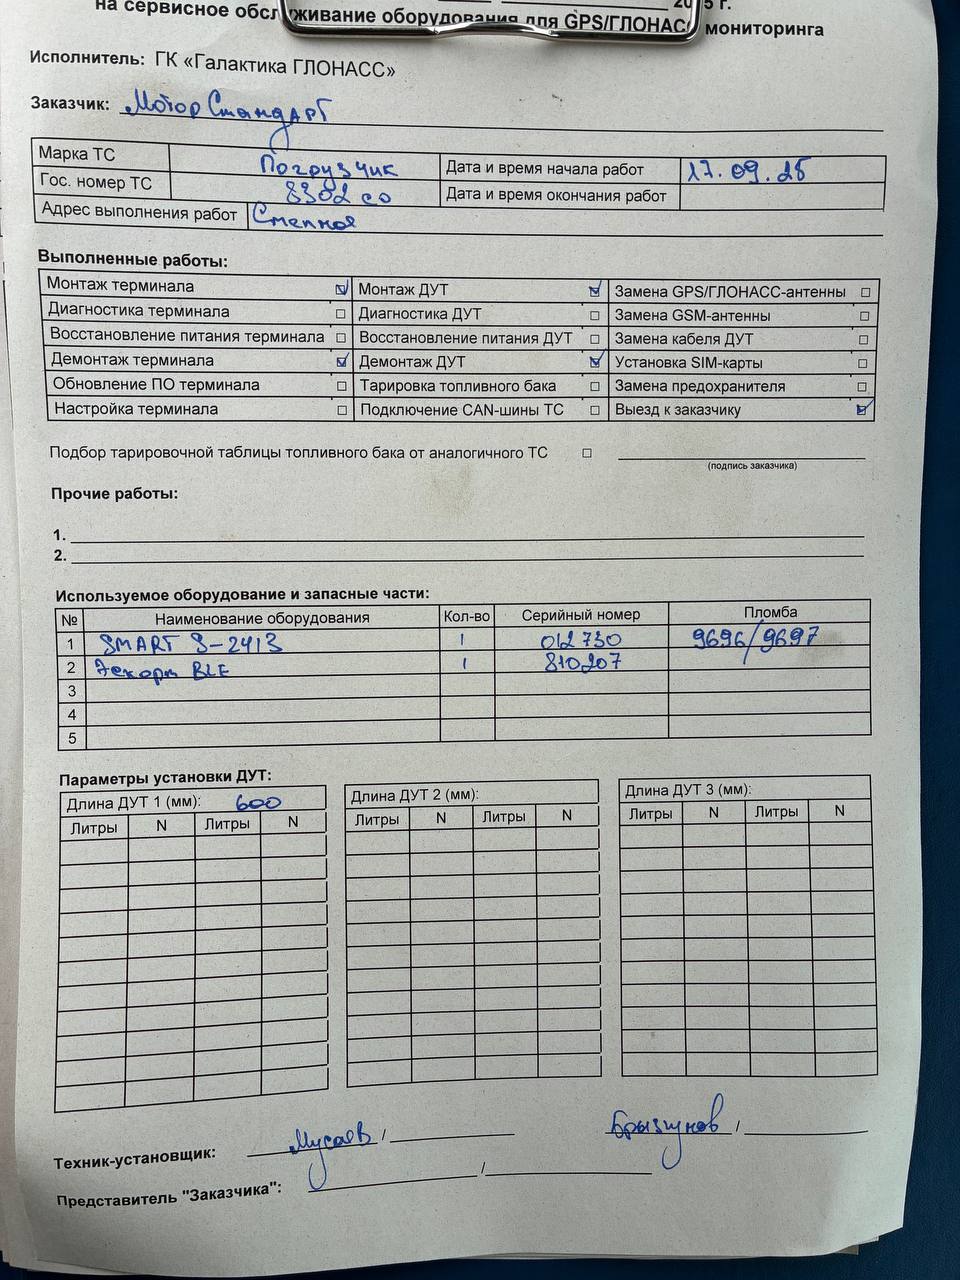 на сервисное обслуживание оборудования для GPS/ГЛОНАСС мониторинга
Исполнитель: ГК «Галактика ГЛОНАСС»
Заказчик: МоторСтандарт
Марка ТС Погрузчик Дата и время начала работ 17.09.25
Гос. номер ТС 8302 со Дата и время окончания работ
Адрес выполнения работ Степное
Выполненные работы:
Монтаж терминала ☑ Монтаж ДУТ ☑ Замена GPS/ГЛОНАСС-антенны ☐
Диагностика терминала ☐ Диагностика ДУТ ☐ Замена GSM-антенны ☐
Восстановление питания терминала ☐ Восстановление питания ДУТ ☐ Замена кабеля ДУТ ☐
Демонтаж терминала ☑ Демонтаж ДУТ ☑ Установка SIM-карты ☐
Обновление ПО терминала ☐ Тарировка топливного бака ☐ Замена предохранителя ☐
Настройка терминала ☐ Подключение CAN-шины ТС ☐ Выезд к заказчику ☑
Подбор тарировочной таблицы топливного бака от аналогичного ТС ☐
(подпись заказчика)
Прочие работы:
1.
2.
Используемое оборудование и запасные части:
№ Наименование оборудования Кол-во Серийный номер Пломба
1 SMART S-2413 1 012730 9696/9697
2 Эскорт BLE 1 810207
3
4
5
Параметры установки ДУТ:
Длина ДУТ 1 (мм): 600 Длина ДУТ 2 (мм): Длина ДУТ 3 (мм):
Литры N Литры N Литры N Литры N Литры N Литры N
Техник-установщик: Мусаев / Брызгунов /
Представитель "Заказчика": /